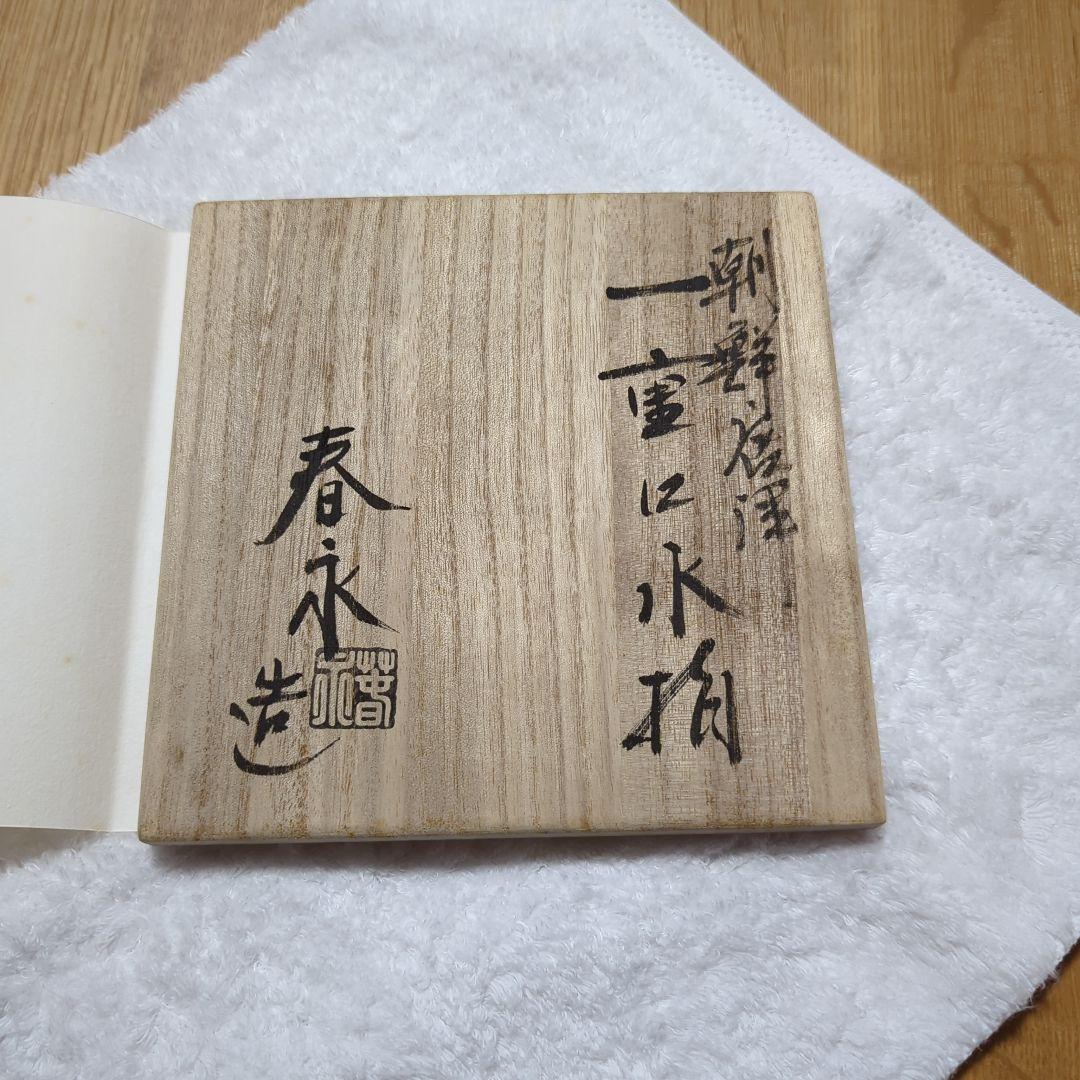 朝鮮唐津
一重口水指
春永
造
春永